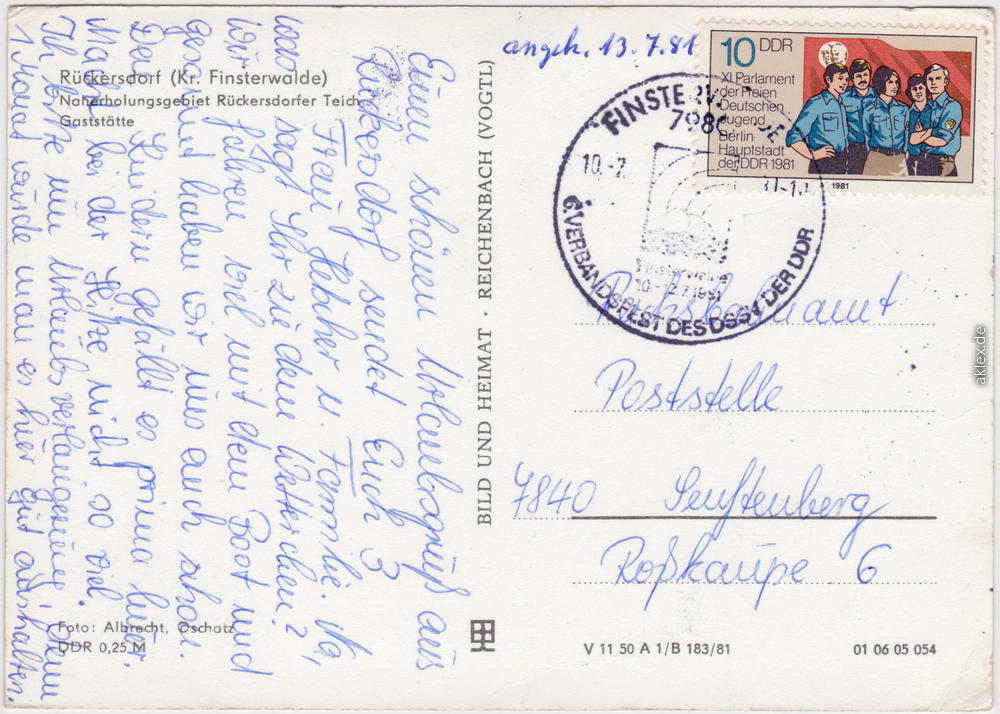 Rückersdorf (Kr. Finsterwalde)
Naherholungsgebiet Rückersdorfer Teich
Gaststätte
Einen schönen Urlaubsgruß aus
Rückersdorf sendet Euch 3
Frau u. Familie. Na,
was sagt Ihr zu dem Wetterchen?
Wir fahren viel mit dem Boot und
gesonnt haben wir uns auch schon.
Den Kindern gefällt es prima hier.
Macht bei der Hitze nicht so viel.
Ich bitte um Urlaubsverlängerung, denn
1 Monat würde man es hier gut aushalten.
Foto: Albrecht, Oschatz
DDR 0,25 M
BILD UND HEIMAT · REICHENBACH (VOGTL)
angek. 13.7.81
10 DDR
XI. Parlament
der Freien
Deutschen
Jugend
Berlin
Hauptstadt
der DDR 1981
1981
FINSTERWALDE
7980
10.-7.
Finsterwalde
10.-12.7.1981
6. VERBANDSFEST DES DSSV DER DDR
Poststelle
7840 Senftenberg
Roßkaupe 6
V 11 50 A 1/B 183/81
01 06 05 054
aklex.de